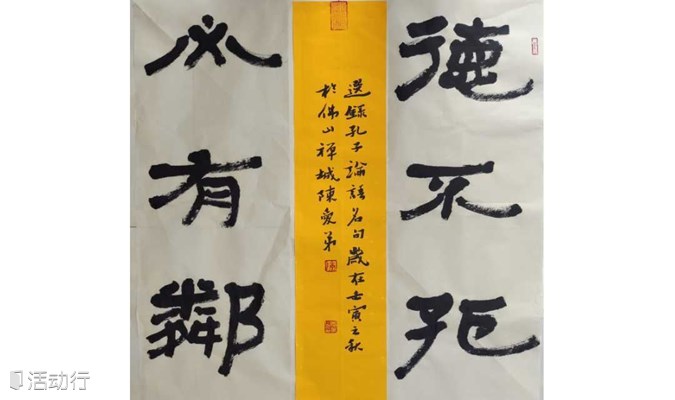 德不孤
選錄孔子論語名句歲在壬寅之秋
於佛山禪城陳愛弟
必有鄰
活动行